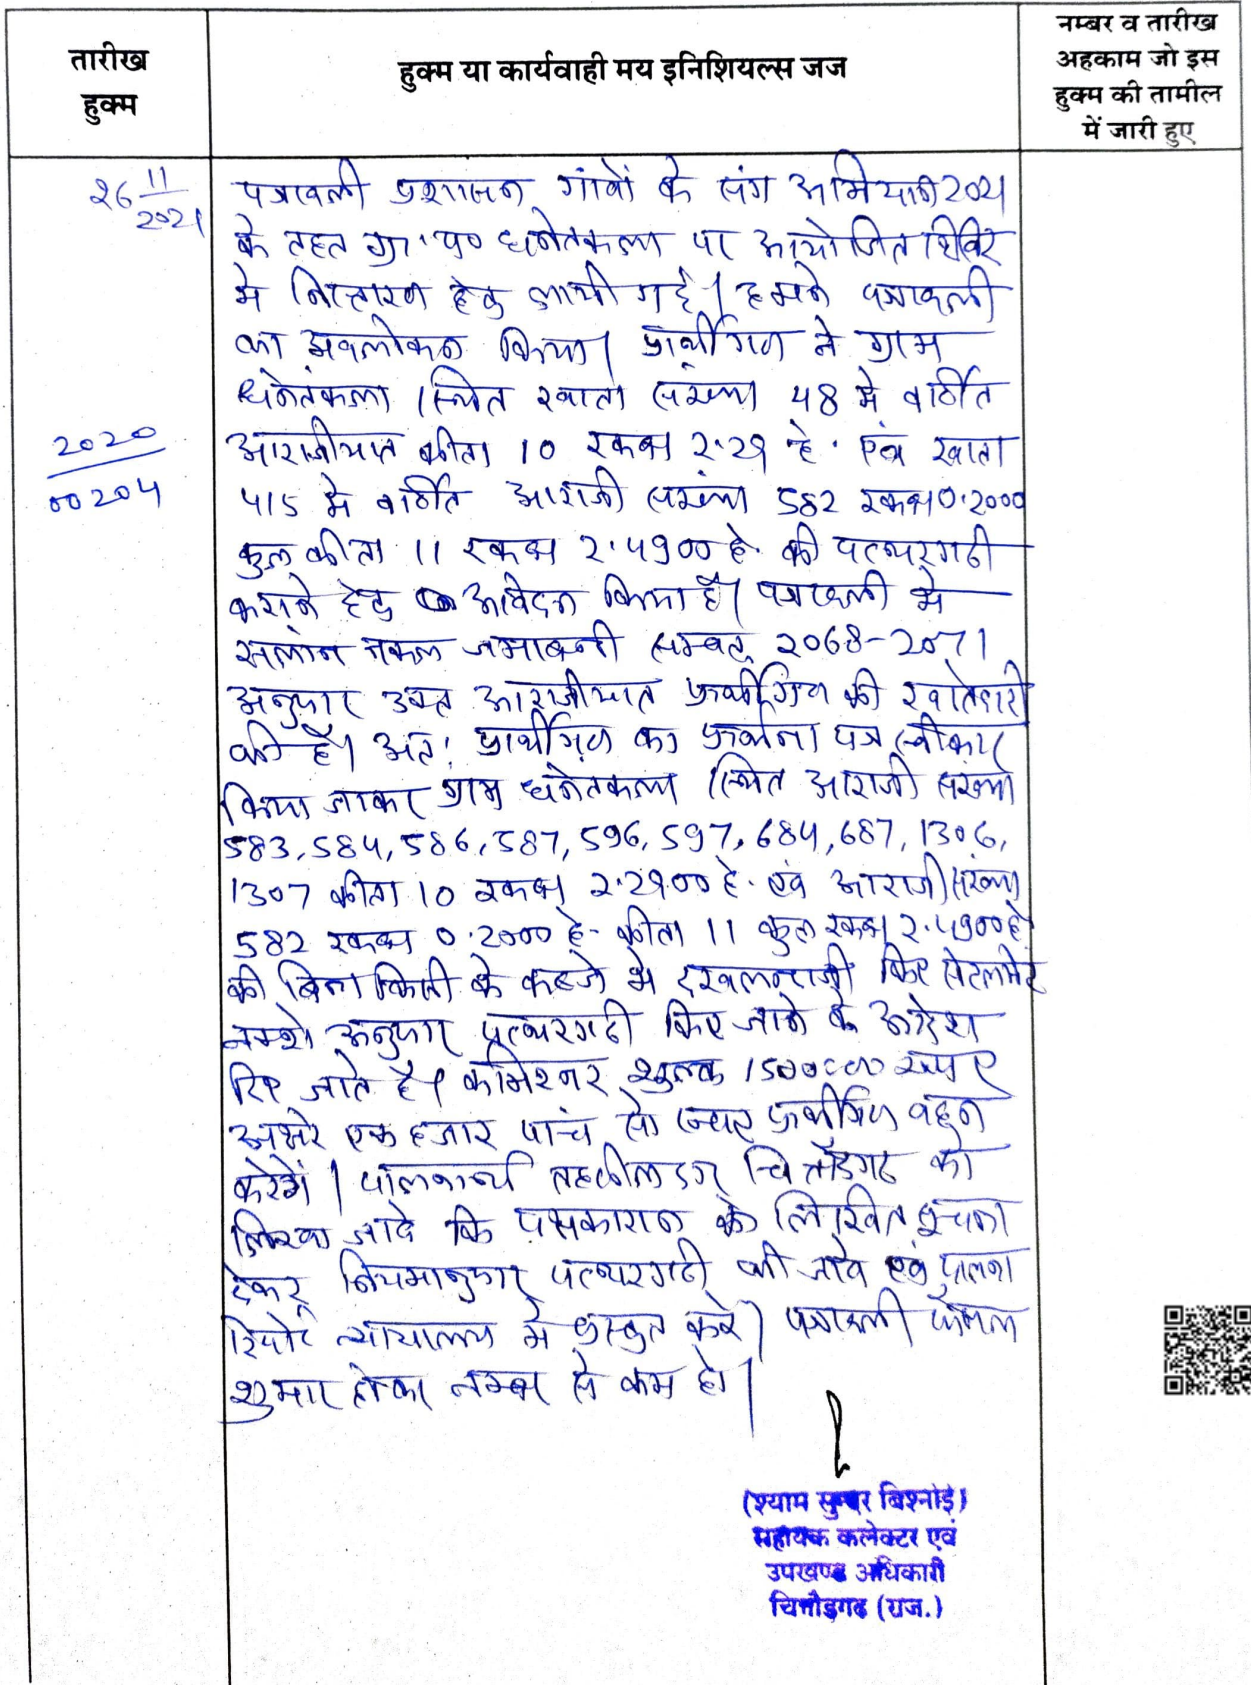 तारीख
हुक्म
हुक्म या कार्यवाही मय इनिशियल्स जज
नम्बर व तारीख
अहकाम जो इस
हुक्म की तामील
में जारी हुए
26 11/2021
2020/00204
पत्रावली प्रशासन गांवों के संग अभियान 2021
के तहत ग्रा. पं० धनेतकला पर आयोजित शिविर
मे निस्तारण हेतु लायी गई। हमने पत्रावली
का अवलोकन किया। प्रार्थीगण ने ग्राम
धनेतकला स्थित खाता संख्या 48 मे वर्णित
आराजीयात कीता 10 रकबा 2.29 है. एवं खाता
415 मे वर्णित आराजी संख्या 582 रकबा 0.2000
कुल कीता 11 रकबा 2.4900 है. की पत्थरगढी
कराने हेतु आवेदन किया है। पत्रावली मे
सलंग्न नकल जमाबन्दी सम्वत् 2068-2071
अनुसार उक्त आराजीयात प्रार्थीगण की खातेदारी
की है। अतः प्रार्थीगण का प्रार्थना पत्र स्वीकार
किया जाकर ग्राम धनेतकला स्थित आराजी संख्या
583, 584, 586, 587, 596, 597, 684, 687, 1306,
1307 कीता 10 रकबा 2.2900 है. एवं आराजी संख्या
582 रकबा 0.2000 है. कीता 11 कुल रकबा 2.4900 है
की बिना किसी के कब्जे मे दखलन्दाजी किए सेटलमेंट
नक्शे अनुसार पत्थरगढी किए जाने के आदेश
दिए जाते है। कमिश्नर शुल्क रूपए
अक्षरे एक हजार पांच सौ रूपए प्रार्थीगण वहन
करेगें। पालनार्थ तहसीलदार चित्तौडगढ को
लिखा जावे कि पक्षकारान को लिखित सूचना
देकर नियमानुसार पत्थरगढी की जावे एवं पालना
रिपोर्ट न्यायालय मे प्रस्तुत करे। पत्रावली फैसल
शुमार होकर नम्बर से कम हो।
(श्याम सुन्दर बिश्नोई)
सहायक कलेक्टर एवं
उपखण्ड अधिकारी
चित्तौड़गढ़ (राज.)